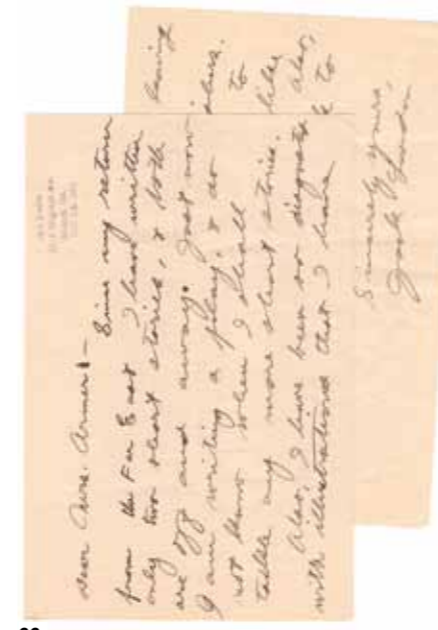 Dear Mrs. Armer:—
Since my return
from the Far East I have written
only two short stories, & both
are off and away. Just now
I am writing a play, & do
not know when I shall
tackle any more short stories.
Also, I have been so disgusted
with illustrations that I have
having
to
like
also,
& to
Sincerely yours,
Jack London